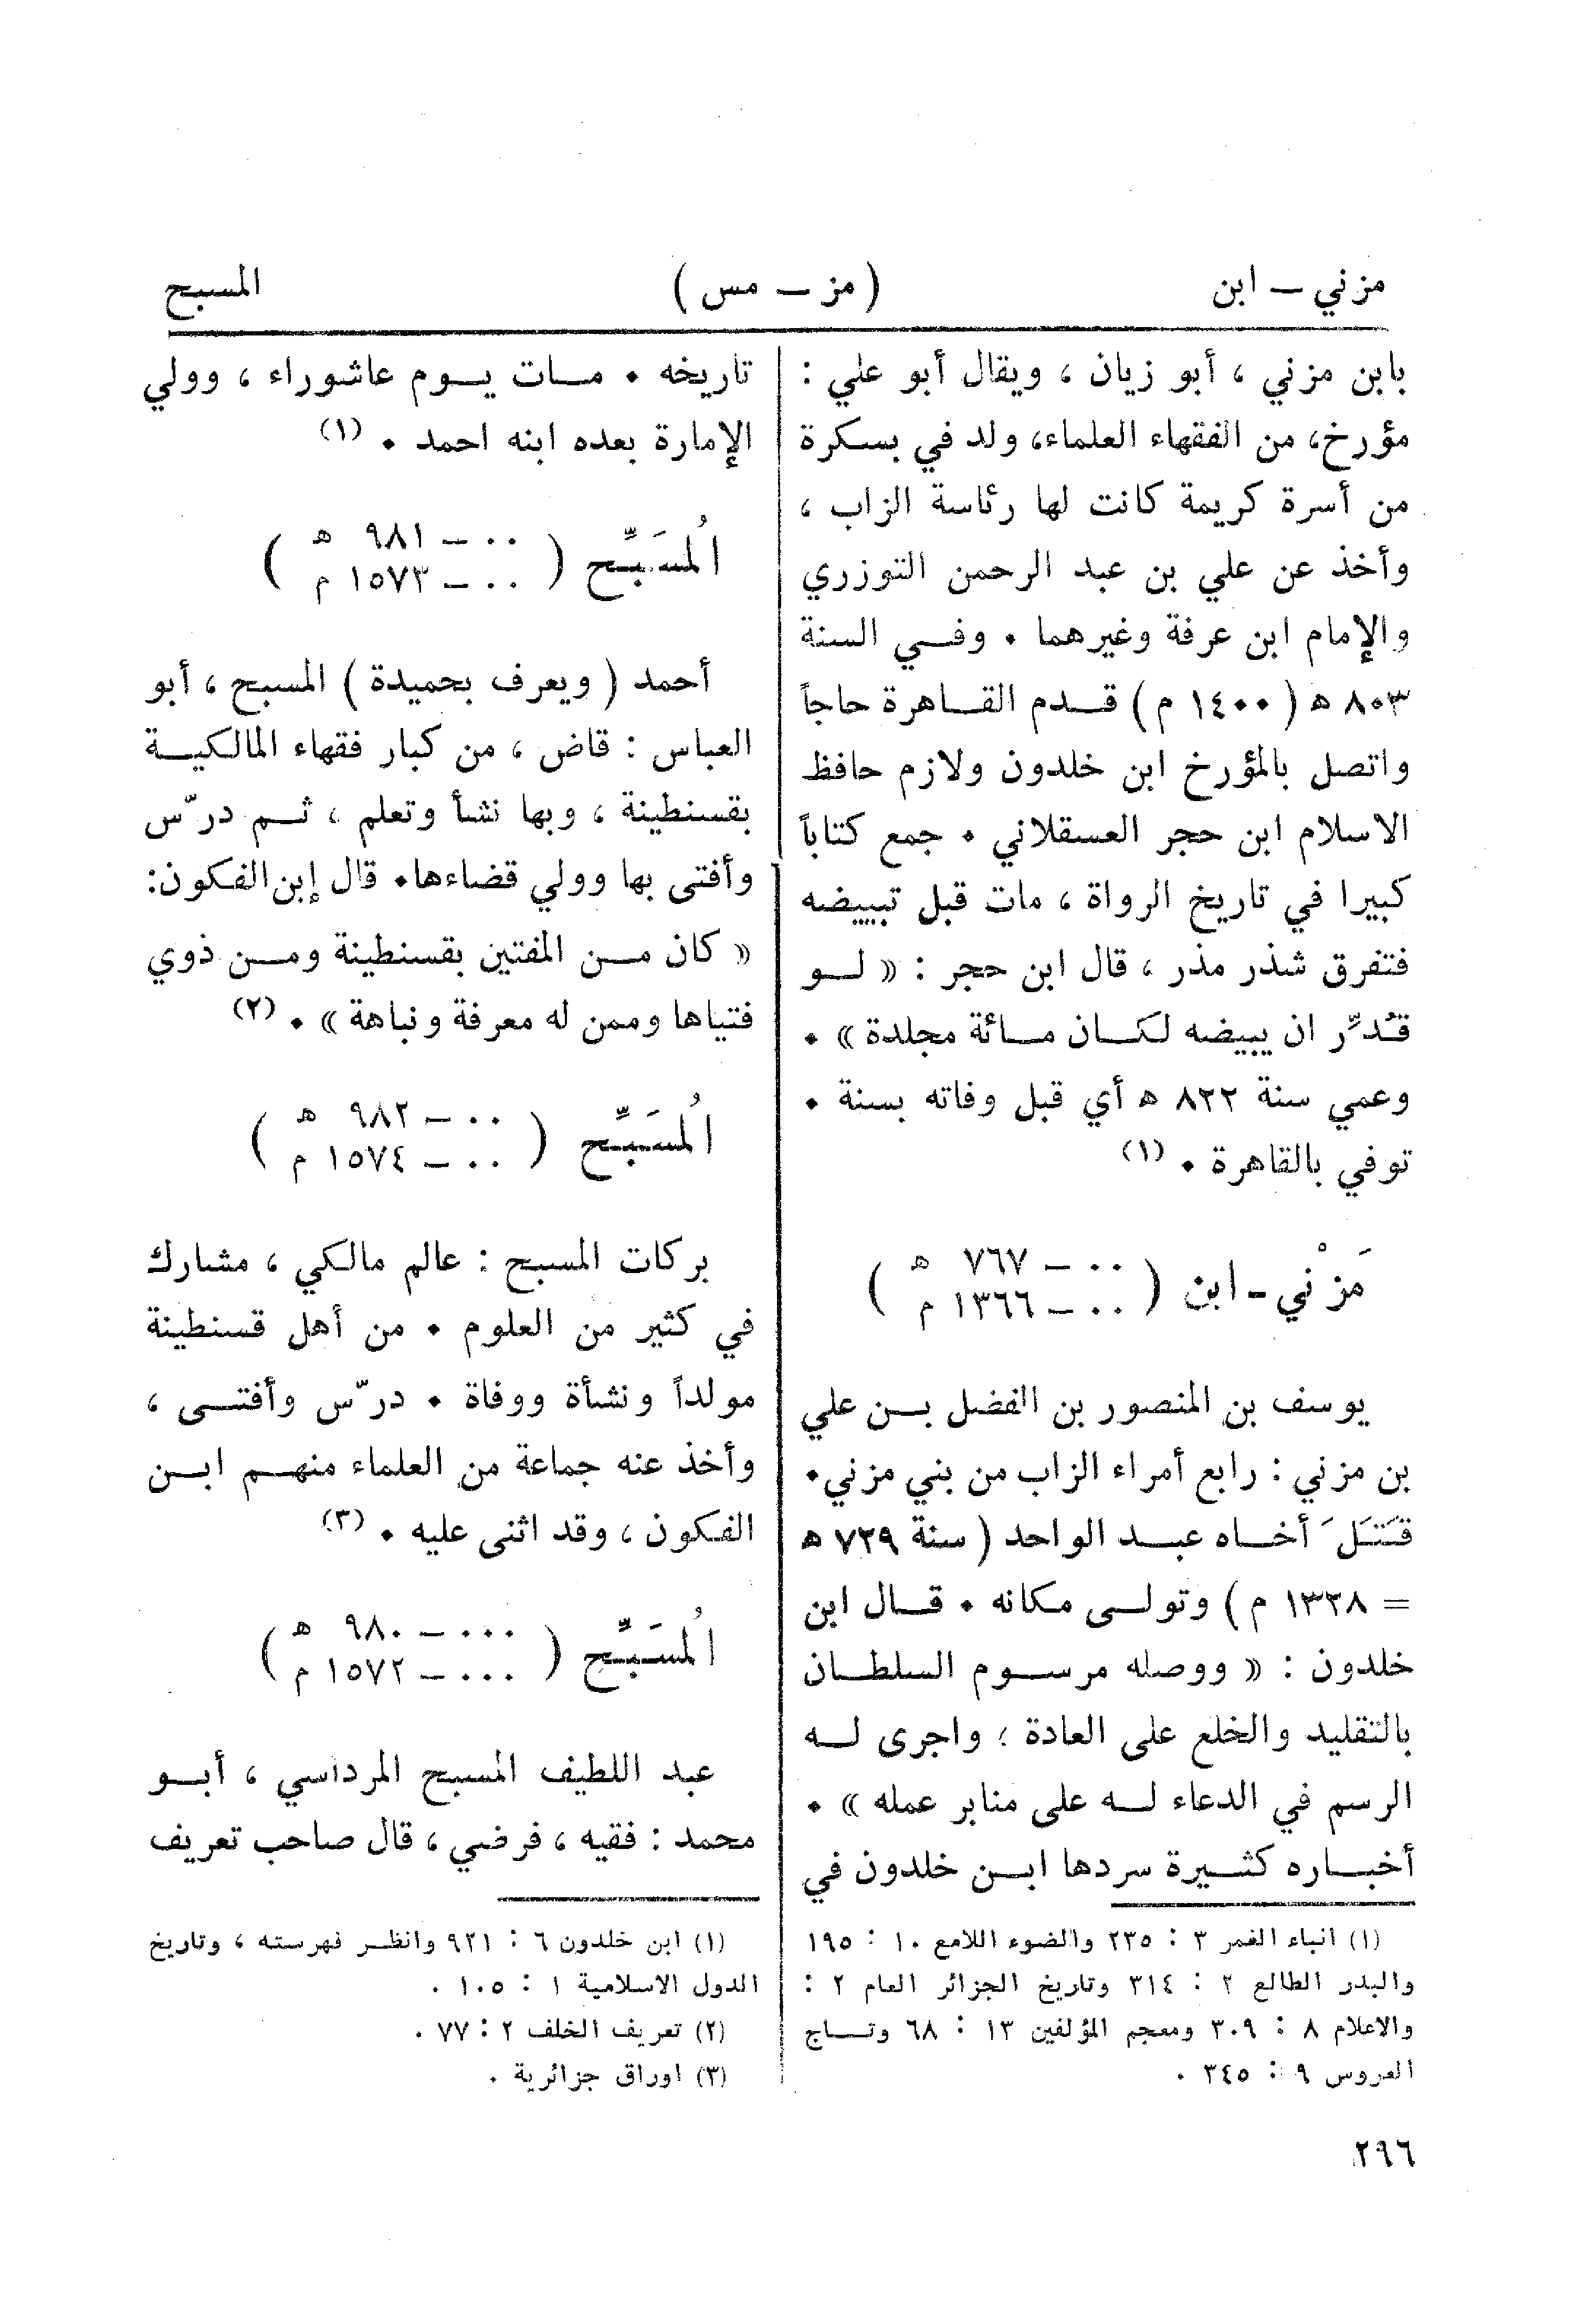 مزني — ابن ( مز — مس ) المسبح
بابن مزني ، أبو زيان ، ويقال أبو علي :
مؤرخ، من الفقهاء العلماء، ولد في بسكرة
من أسرة كريمة كانت لها رئاسة الزاب ،
وأخذ عن علي بن عبد الرحمن التوزري
والإمام ابن عرفة وغيرهما . وفي السنة
٨٠٣ هـ ( ١٤٠٠ م ) قدم القاهرة حاجاً
واتصل بالمؤرخ ابن خلدون ولازم حافظ
الاسلام ابن حجر العسقلاني . جمع كتاباً
كبيرا في تاريخ الرواة ، مات قبل تبييضه
فتفرق شذر مذر ، قال ابن حجر : « لو
قُدِّر ان يبيضه لكان مائة مجلدة » .
وعمي سنة ٨٢٢ هـ أي قبل وفاته بسنة .
توفي بالقاهرة . (١)
مَزْني - ابن ( ٠٠ — ٧٦٧ هـ
٠٠ — ١٣٦٦ م )
يوسف بن المنصور بن الفضل بن علي
بن مزني : رابع أمراء الزاب من بني مزني .
قَتَلَ أخاه عبد الواحد ( سنة ٧٢٩ هـ
= ١٣٢٨ م ) وتولى مكانه . قال ابن
خلدون : « ووصله مرسوم السلطان
بالتقليد والخلع على العادة ؛ واجرى له
الرسم في الدعاء له على منابر عمله » .
أخباره كثيرة سردها ابن خلدون في
(١) انباء الغمر ٣ : ٢٣٥ والضوء اللامع ١٠ : ١٩٥
والبدر الطالع ٢ : ٣١٤ وتاريخ الجزائر العام ٢ :
والاعلام ٨ : ٣٠٩ ومعجم المؤلفين ١٣ : ٦٨ وتاج
العروس ٩ : ٣٤٥ .
تاريخه . مات يوم عاشوراء ، وولي
الإمارة بعده ابنه احمد . (١)
المُسَبِّح ( ٠٠ — ٩٨١ هـ
٠٠ — ١٥٧٣ م )
أحمد ( ويعرف بحميدة ) المسبح ، أبو
العباس : قاض ، من كبار فقهاء المالكية
بقسنطينة ، وبها نشأ وتعلم ، ثم درّس
وأفتى بها وولي قضاءها . قال إبن الفكون:
« كان من المفتين بقسنطينة ومن ذوي
فتياها وممن له معرفة ونباهة » . (٢)
المُسَبِّح ( ٠٠ — ٩٨٢ هـ
٠٠ — ١٥٧٤ م )
بركات المسبح : عالم مالكي ، مشارك
في كثير من العلوم . من أهل قسنطينة
مولداً ونشأة ووفاة . درّس وأفتى ،
وأخذ عنه جماعة من العلماء منهم ابن
الفكون ، وقد اثنى عليه . (٣)
المُسَبِّح ( ٠٠٠ — ٩٨٠ هـ
٠٠٠ — ١٥٧٢ م )
عبد اللطيف المسبح المرداسي ، أبو
محمد : فقيه ، فرضي ، قال صاحب تعريف
(١) ابن خلدون ٦ : ٩٢١ وانظر فهرسته ، وتاريخ
الدول الاسلامية ١ : ١٠٥ .
(٢) تعريف الخلف ٢ : ٧٧ .
(٣) اوراق جزائرية .
٢٩٦